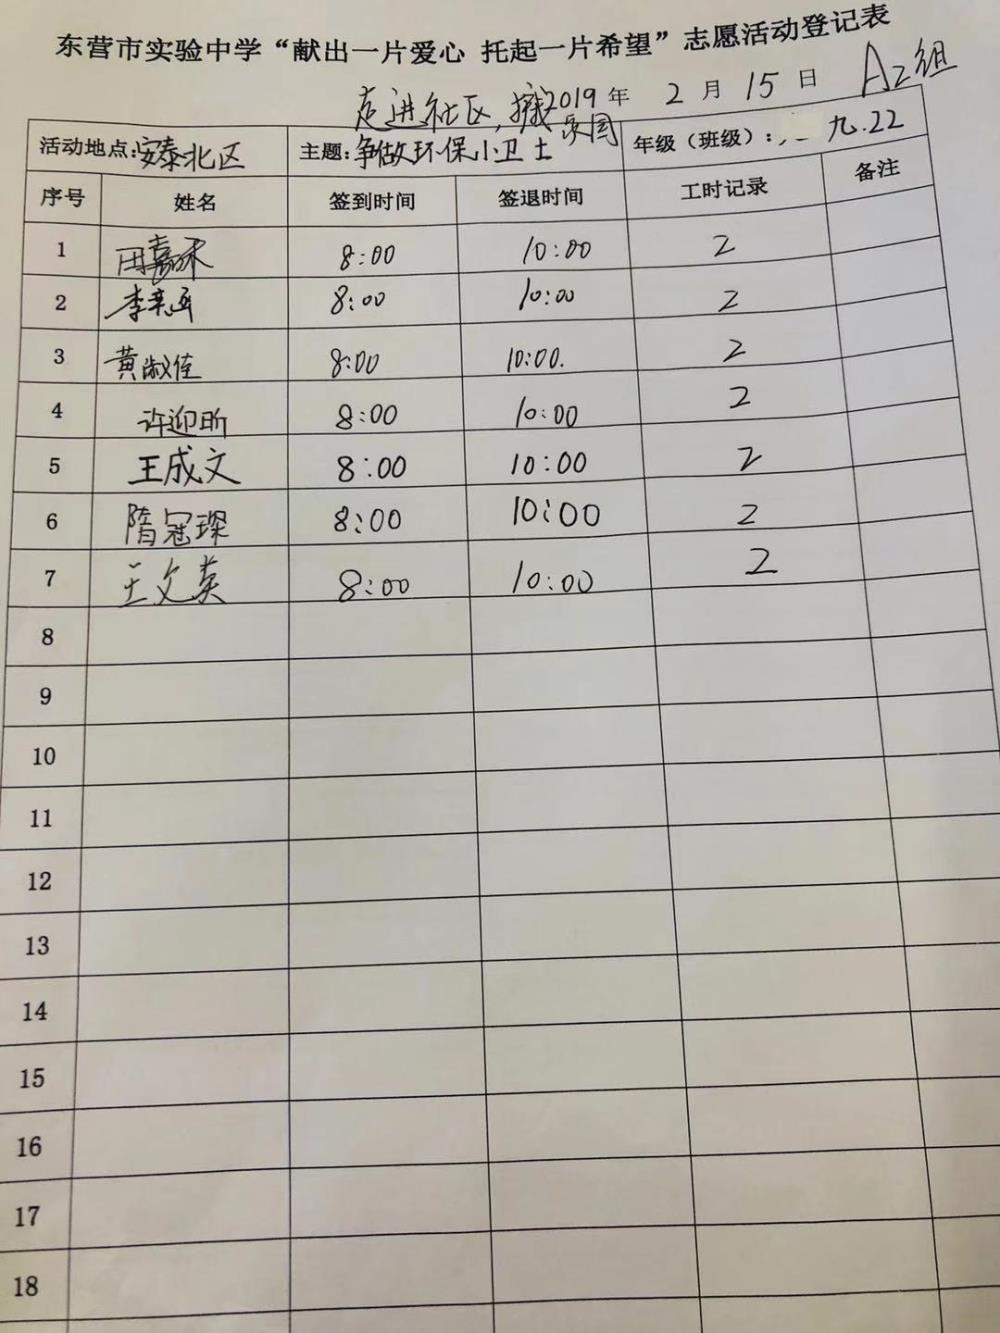 东营市实验中学“献出一片爱心 托起一片希望”志愿活动登记表
2019年 2月15日 A2组
走进社区,
家园
活动地点:安泰北区 主题:争做环保小卫士 年级(班级): 九.22
序号 姓名 签到时间 签退时间 工时记录 备注
1 田嘉禾 8:00 10:00 2
2 李 函 8:00 10:00 2
3 黄淑佳 8:00 10:00. 2
4 许迎昕 8:00 10:00 2
5 王成文 8:00 10:00 2
6 隋冠琛 8:00 10:00 2
7 王文英 8:00 10:00 2
8
9
10
11
12
13
14
15
16
17
18